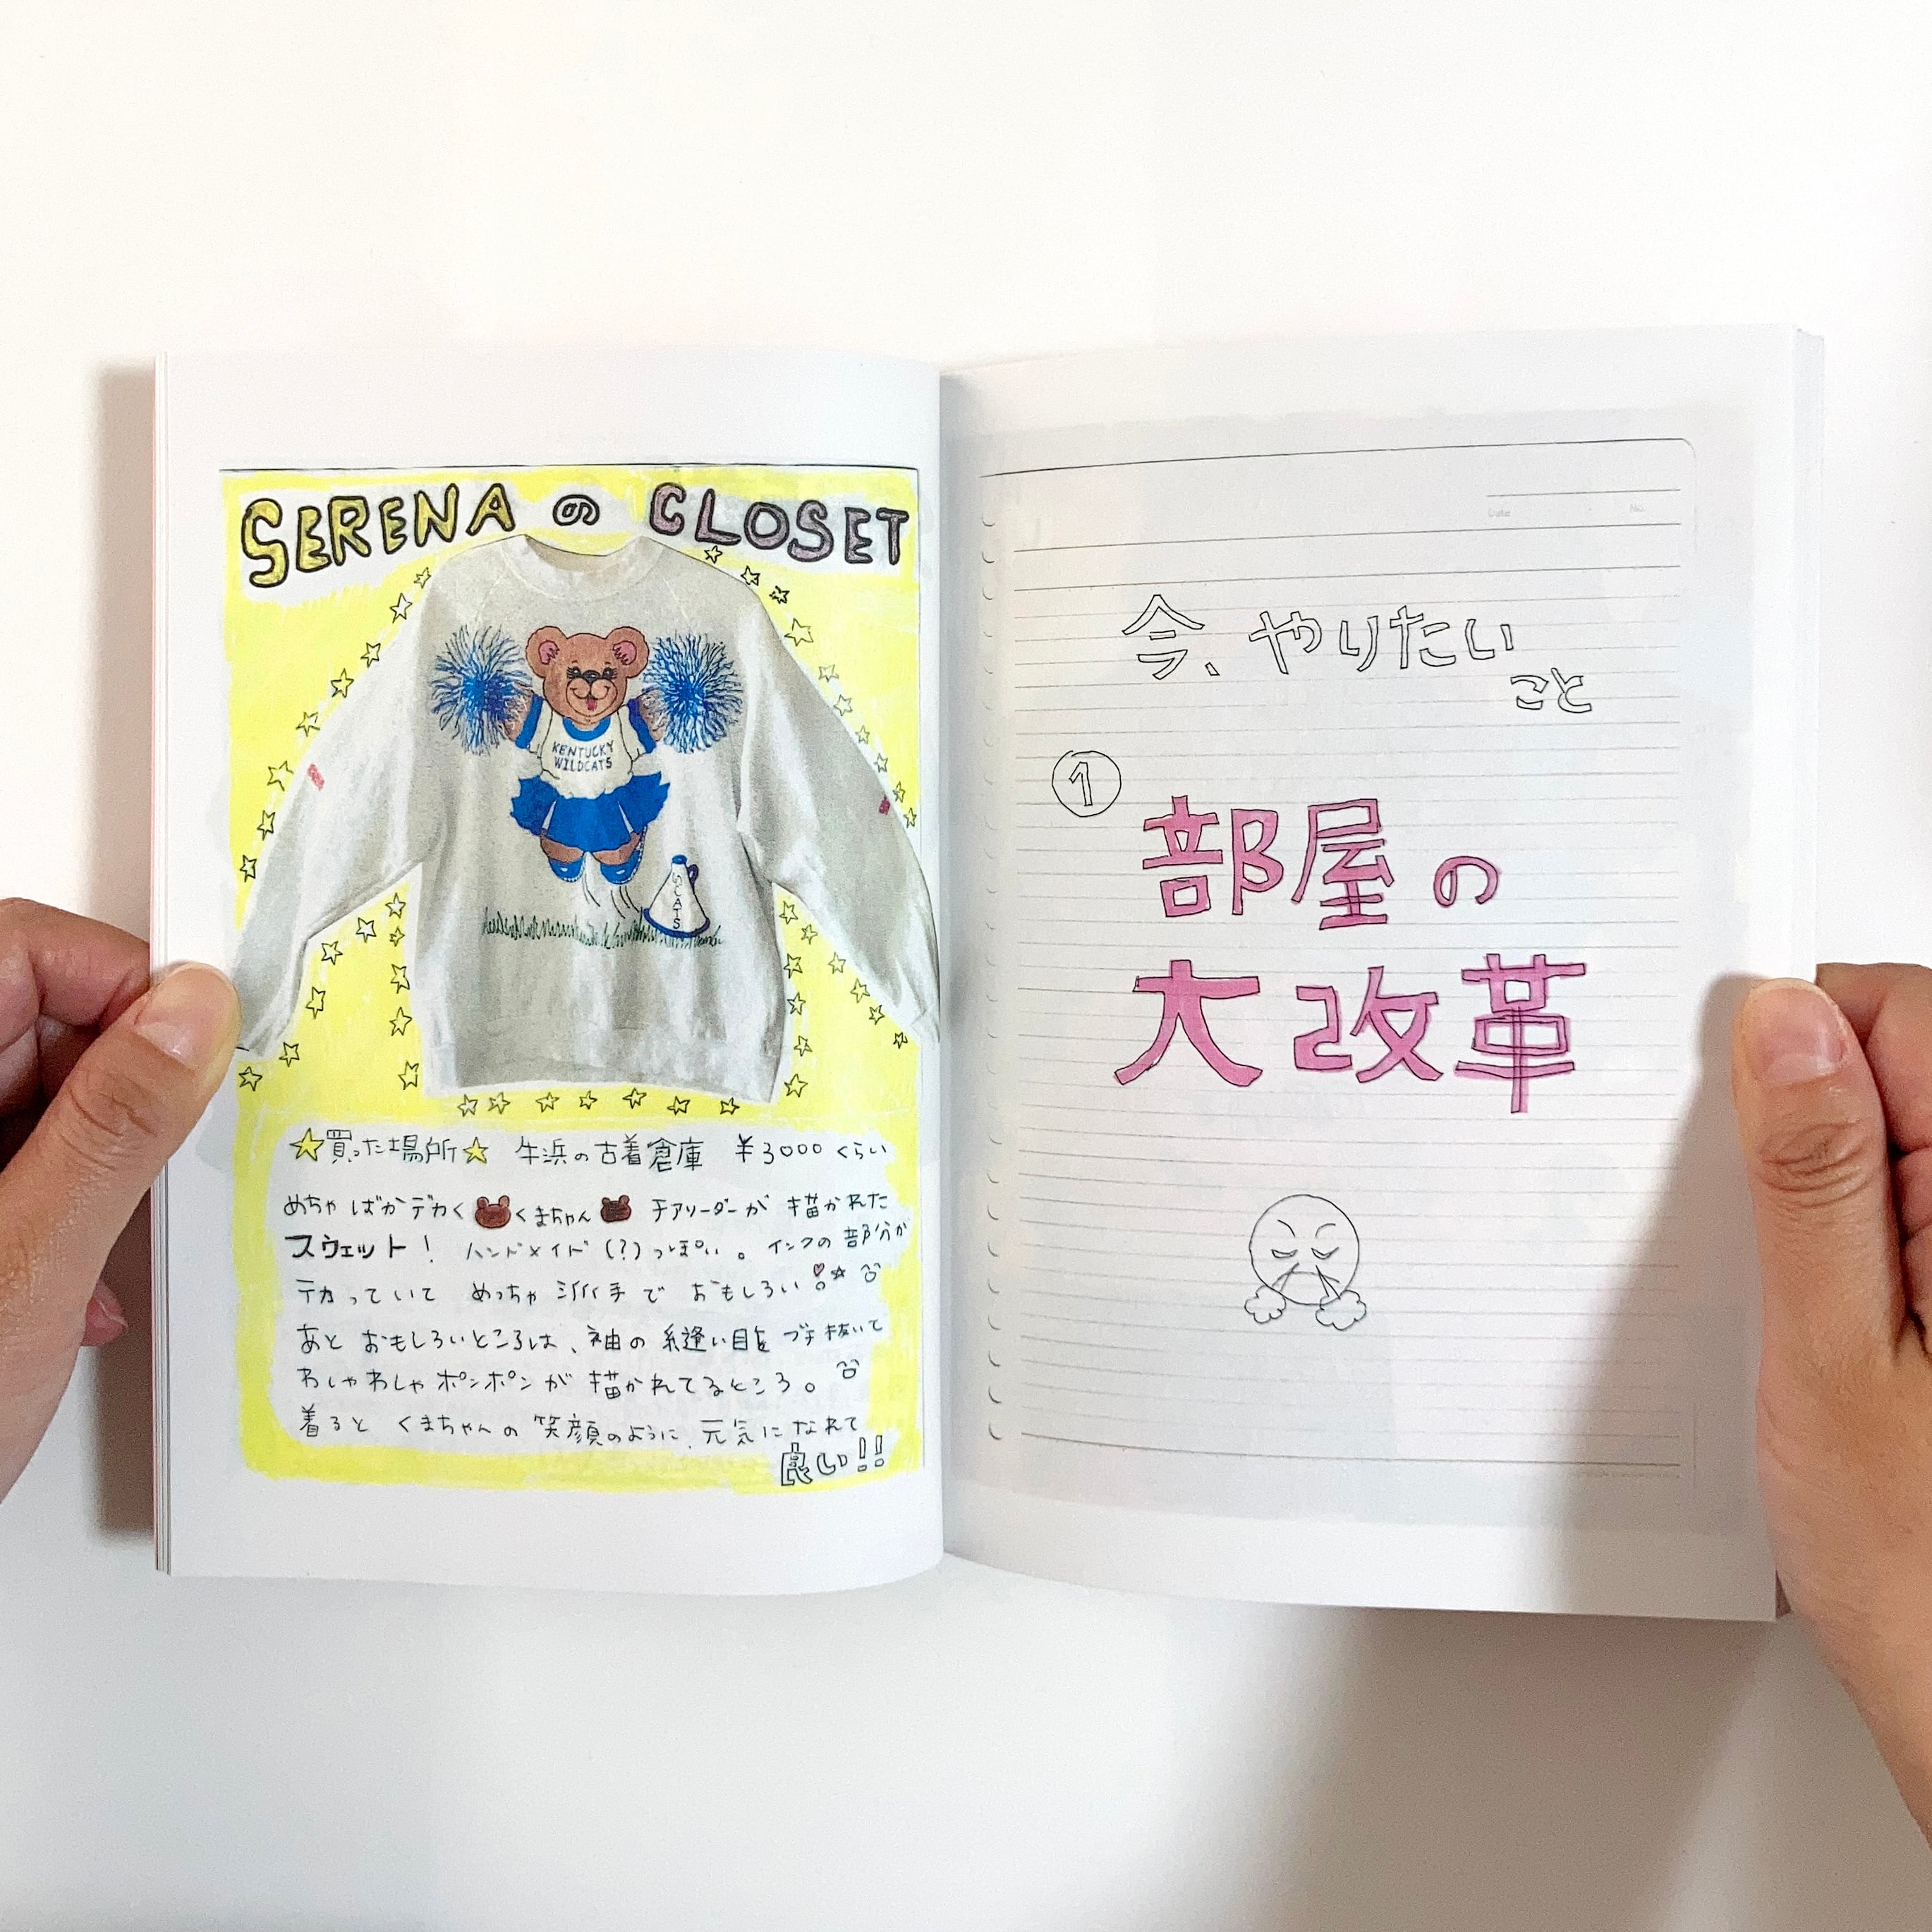 SERENA の CLOSET
KENTUCKY
WILDCATS
CATS
☆買った場所☆ 牛浜の古着倉庫 ¥3000くらい
めちゃばかデカく くまちゃん チアリーダーが 描かれた
スウェット! ハンドメイド(?)っぽい。インクの部分が
テカっていて めっちゃ派手で おもしろい
あと おもしろいところは、袖の縫い目をブチ抜いて
わしゃわしゃポンポンが 描かれてるところ。
着ると くまちゃんの笑顔のように、元気になれて
良い!!
Date . . No.
今、やりたい
こと
①
部屋の
大改革